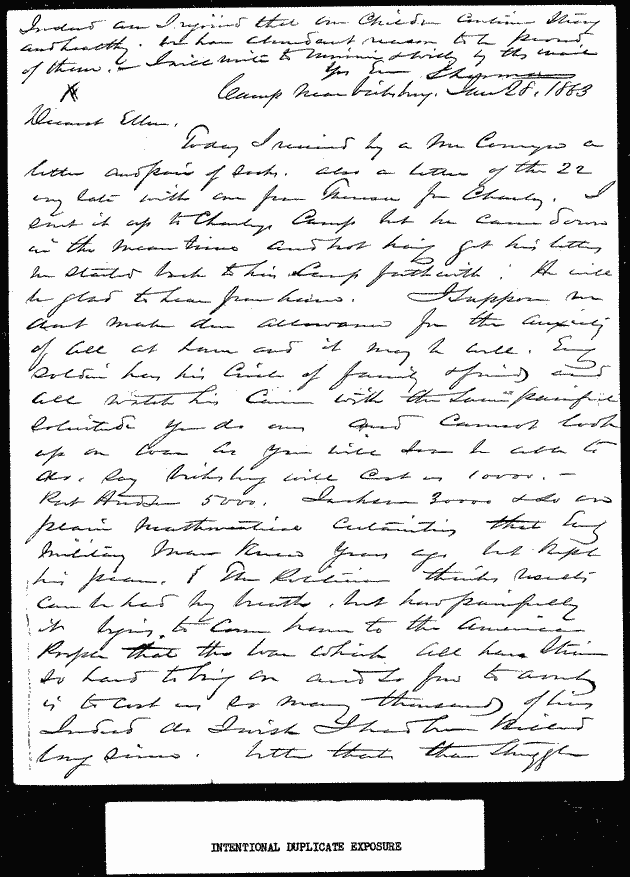 Indeed am I rejoiced that our Children continue strong
and healthy. We have abundant reason to be proud
of them. I will write to Minnie by this mail
Yrs Ever Sherman
Camp near Vicksburg. Jan 28, 1863
Dearest Ellen,
Today I received by a Mr Comyns a
letter and pair of socks. also a letter of the 22
with one from Theresa for Charley. I
sent it up to Charleys Camp but he came down
in the mean time and not having got his letter
he started back to his Camp forthwith. He will
be glad to hear from home. I suppose we
dont make due allowance for the anxiety
of all at home and it may be well. Every
soldier has his Circle of family & friends and
all watch his Career with the same painful
solicitude you do mine and cannot look
upon war as you will soon be able to
do. Say Vicksburg will cost us 10000. —
Port Hudson 5000. Jackson 30000 & so on
plain mathematical certainties that Every
Military Man Knew years ago but kept
his peace. The Politician thinks results
can be had by breath, but how painfully
it begins to come home to the American
People that the war which all have striven
so hard to bring on and so few to avoid
is to cost us so many thousands of lives
Indeed do I wish I had been killed
long since. better that than struggle
INTENTIONAL DUPLICATE EXPOSURE